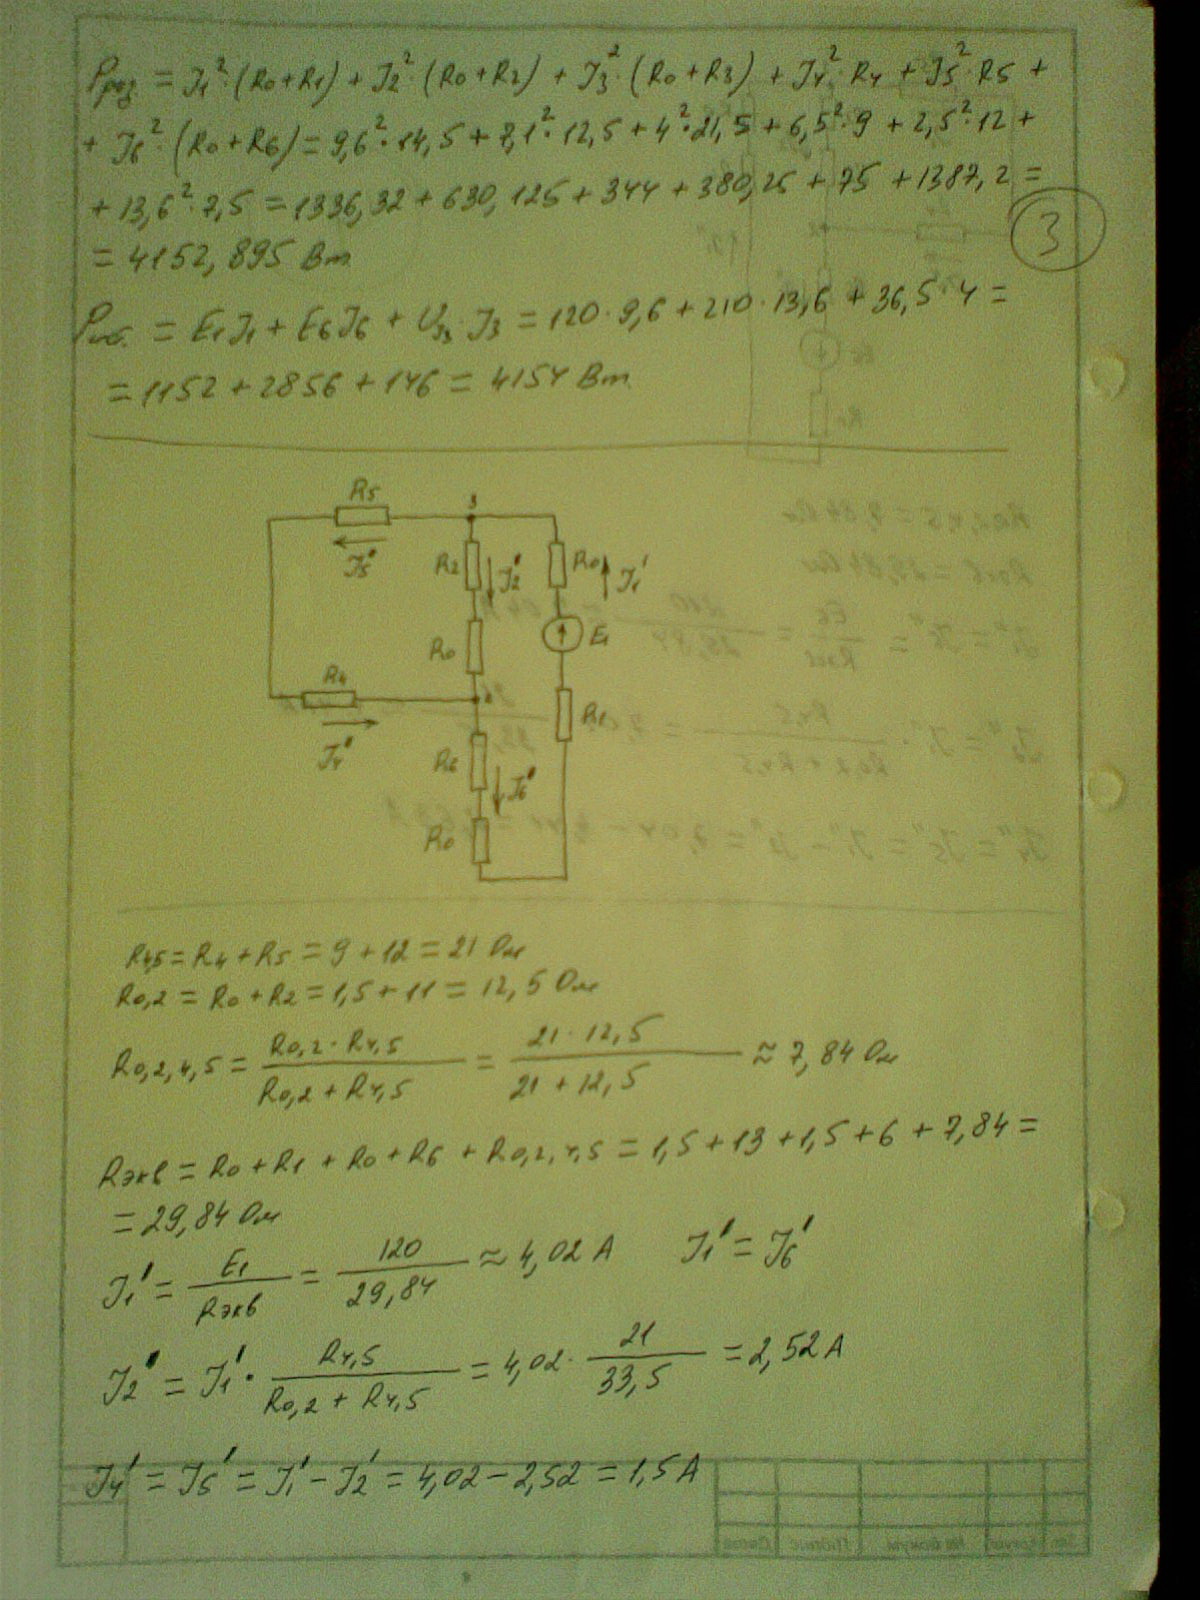 Pраз = I1²·(R0+R1) + I2²·(R0+R2) + I3²·(R0+R3) + I4²·R4 + I5²·R5 +
+ I6²·(R0+R6) = 9,6²·14,5 + 7,1²·12,5 + 4²·21,5 + 6,5²·9 + 2,5²·12 +
+ 13,6²·7,5 = 1336,32 + 630,125 + 344 + 380,25 + 75 + 1387,2 =
= 4152,895 Вт
3
= E1I1 + E6I6 + U33·I3 = 120·9,6 + 210·13,6 + 36,5·4 =
= 1152 + 2856 + 146 = 4154 Вт
R5
3
I5'
R2
I2'
R0
I1'
R0
E1
R4
I4'
R1
R6
I6'
R0
R4,5 = R4 + R5 = 9 + 12 = 21 Ом
R0,2 = R0 + R2 = 1,5 + 11 = 12,5 Ом
R0,2,4,5 = R0,2·R4,5 / R0,2 + R4,5 = 21·12,5 / 21 + 12,5 ≈ 7,84 Ом
Rэкв = R0 + R1 + R0 + R6 + R0,2,4,5 = 1,5 + 13 + 1,5 + 6 + 7,84 =
= 29,84 Ом
I1' = E1 / Rэкв = 120 / 29,84 ≈ 4,02 А I1' = I6'
I2' = I1'· R4,5 / R0,2 + R4,5 = 4,02· 21 / 33,5 = 2,52 А
I4' = I5' = I1' − I2' = 4,02 − 2,52 = 1,5 А